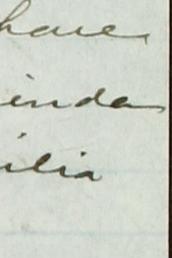 have
inda
ilia